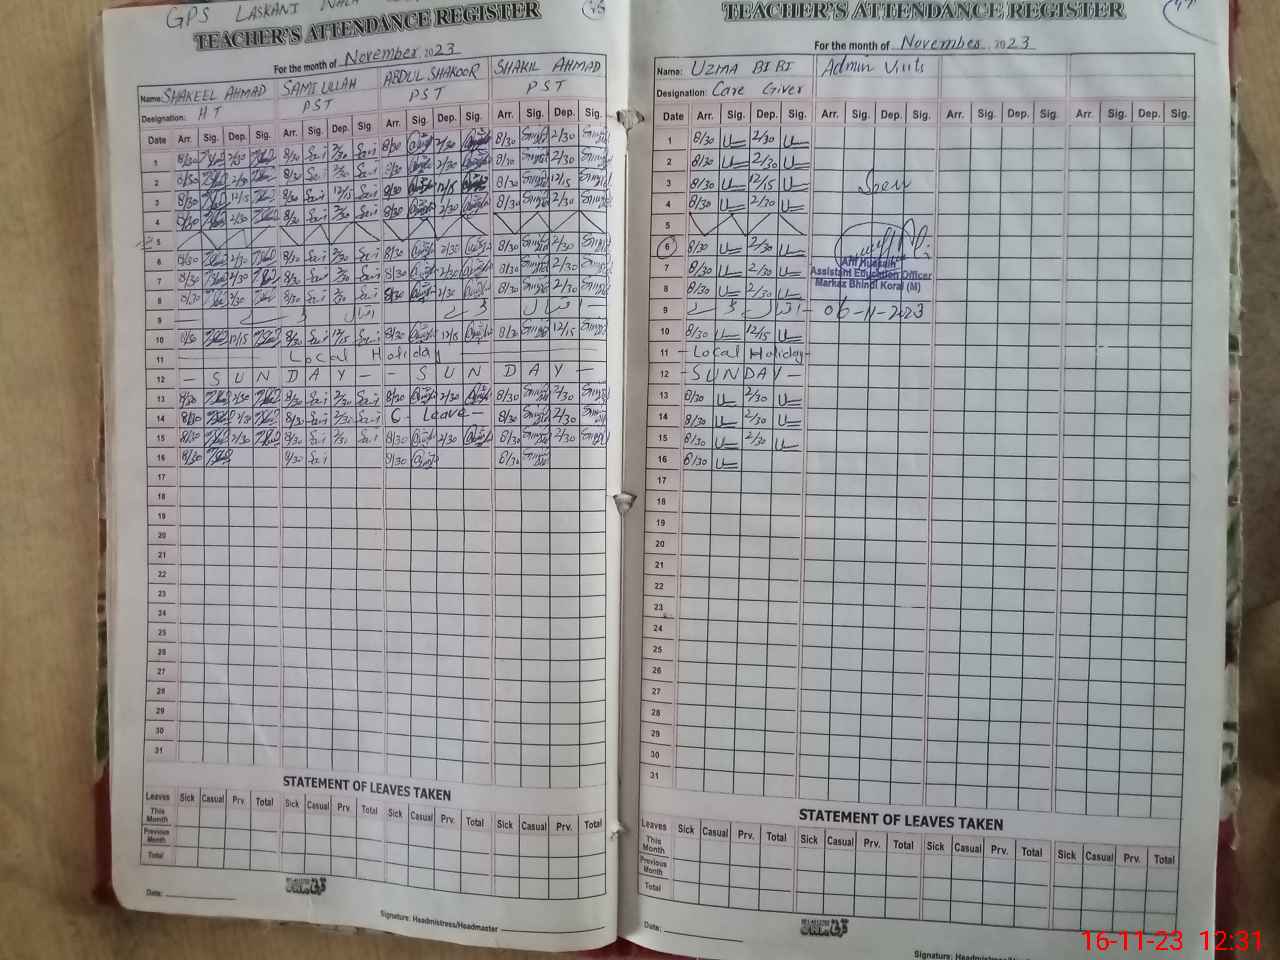 GPS LASKANI WALA
TEACHER'S ATTENDANCE REGISTER
For the month of November 2023
Name: SHAKEEL AHMAD SAMI ULLAH ABDUL SHAKOOR SHAKIL AHMAD
Designation: HT PST PST PST
Date Arr. Sig. Dep. Sig. Arr. Sig. Dep. Sig. Arr. Sig. Dep. Sig. Arr. Sig. Dep. Sig.
1 8/30 2/30 8/30 2/30 8/30 2/30 8/30 2/30
2 8/30 2/30 8/30 2/30 8/30 2/30 8/30 2/30
3 8/30 12/15 8/30 12/15 8/30 12/15 8/30 12/15
4 8/30 2/30 8/30 2/30 8/30 2/30 8/30 2/30
5
6 8/30 2/30 8/30 2/30 8/30 2/30 8/30 2/30
7 8/30 2/30 8/30 2/30 8/30 2/30 8/30 2/30
8 8/30 2/30 8/30 2/30 8/30 2/30 8/30 2/30
9 اقبال ڈے اقبال ڈے
10 8/30 12/15 8/30 12/15 8/30 12/15 8/30 12/15
11 Local Holiday
12 - SUNDAY - - SUNDAY -
13 8/30 2/30 8/30 2/30 8/30 2/30 8/30 2/30
14 8/30 2/30 8/30 2/30 C - Leave - 8/30 2/30
15 8/30 2/30 8/30 2/30 8/30 2/30 8/30 2/30
16 8/30 8/30 8/30 8/30
17
18
19
20
21
22
23
24
25
26
27
28
29
30
31
STATEMENT OF LEAVES TAKEN
Leaves Sick Casual Prv. Total Sick Casual Prv. Total Sick Casual Prv. Total Sick Casual Prv. Total
This Month
Previous Month
Total
Date:
Signature: Headmistress/Headmaster
TEACHER'S ATTENDANCE REGISTER
For the month of November 2023
Name: UZMA BIBI Admin Visits
Designation: Care Giver
Date Arr. Sig. Dep. Sig. Arr. Sig. Dep. Sig. Arr. Sig. Dep. Sig. Arr. Sig. Dep. Sig.
1 8/30 2/30
2 8/30 2/30
3 8/30 12/15 Seen
4 8/30 2/30
5
6 8/30 2/30
7 8/30 2/30 Arif Hussain
Assistant Education Officer
8 8/30 2/30 Markaz Bhindi Korai (M)
9 اقبال ڈے 06-11-2023
10 8/30 12/15
11 - Local Holiday -
12 - SUNDAY -
13 8/30 2/30
14 8/30 2/30
15 8/30 2/30
16 8/30
17
18
19
20
21
22
23
24
25
26
27
28
29
30
31
STATEMENT OF LEAVES TAKEN
Leaves Sick Casual Prv. Total Sick Casual Prv. Total Sick Casual Prv. Total Sick Casual Prv. Total
This Month
Previous Month
Total
Date:
Signature: Headmistress/
16-11-23 12:31